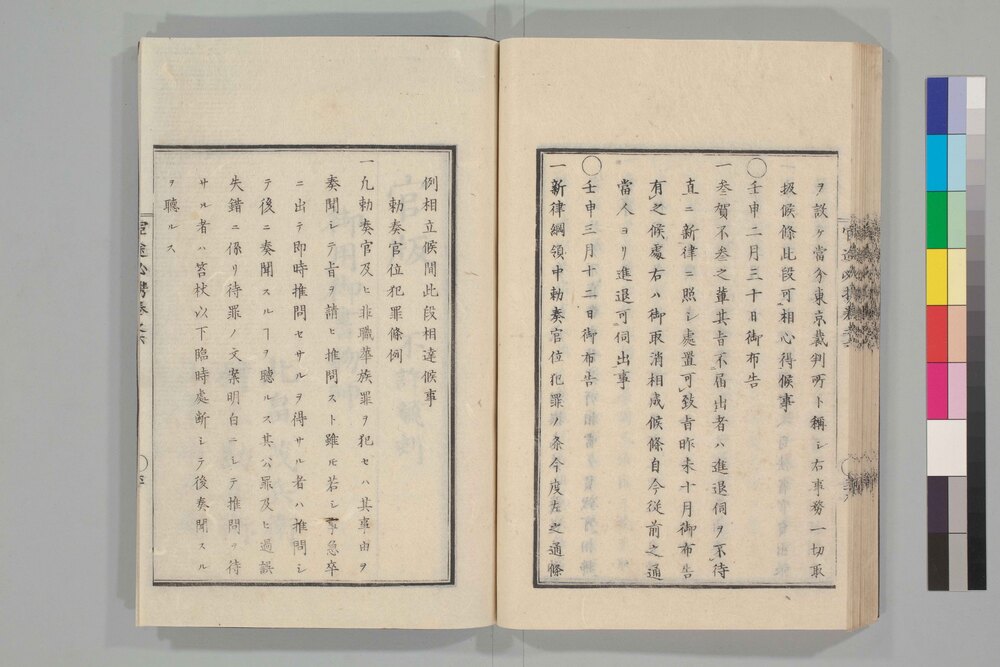 ヲ設ケ當分東京裁判所ト稱シ右事務一切取
扱候條此段可相心得候事
〇壬申二月三十日御布告
一參賀不参之輩其旨不届出者ハ進退伺ヲ不待
直ニ新律ニ照シ處置可致旨昨未十月御布告
有之候處右ハ御取消相成候條自今從前之通
當人ヨリ進退可伺出事
〇壬申三月十二日御布告
一新律綱領中勅奏官位犯罪ノ条今度左之通條
例相立候間此段相達候事
勅奏官位犯罪條例
一凡勅奏官及ヒ非職華族罪ヲ犯セハ其事由ヲ
奏聞シテ旨ヲ請ヒ推問スト雖モ若シ事急卒
ニ出テ即時推問セサルヲ得サル者ハ推問シ
テ後ニ奏聞スルヿヲ聽ルス其公罪及ヒ過誤
失錯ニ係リ待罪ノ文案明白ニシテ推問ヲ待
サル者ハ笞杖以下臨時處断シテ後奏聞スル
ヲ聽ルス
官途必携巻之六